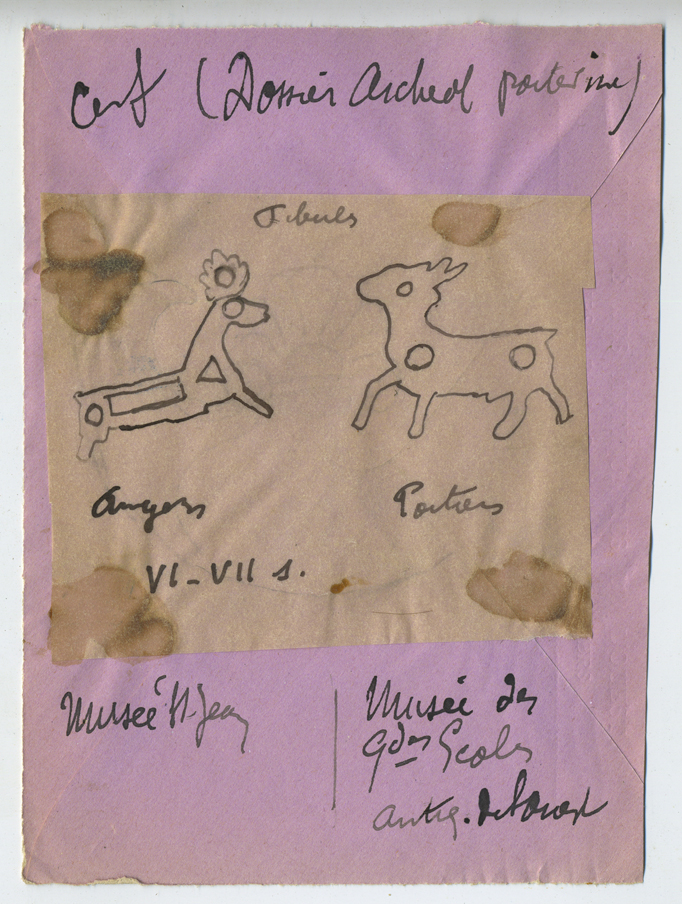 Cerf (Dossier Archeol poitevine)
Fibules
Angers
Poitiers
VI-VII s.
Musée St Jean
Musée des
Gdes Ecoles
Antiq. de l'Ouest